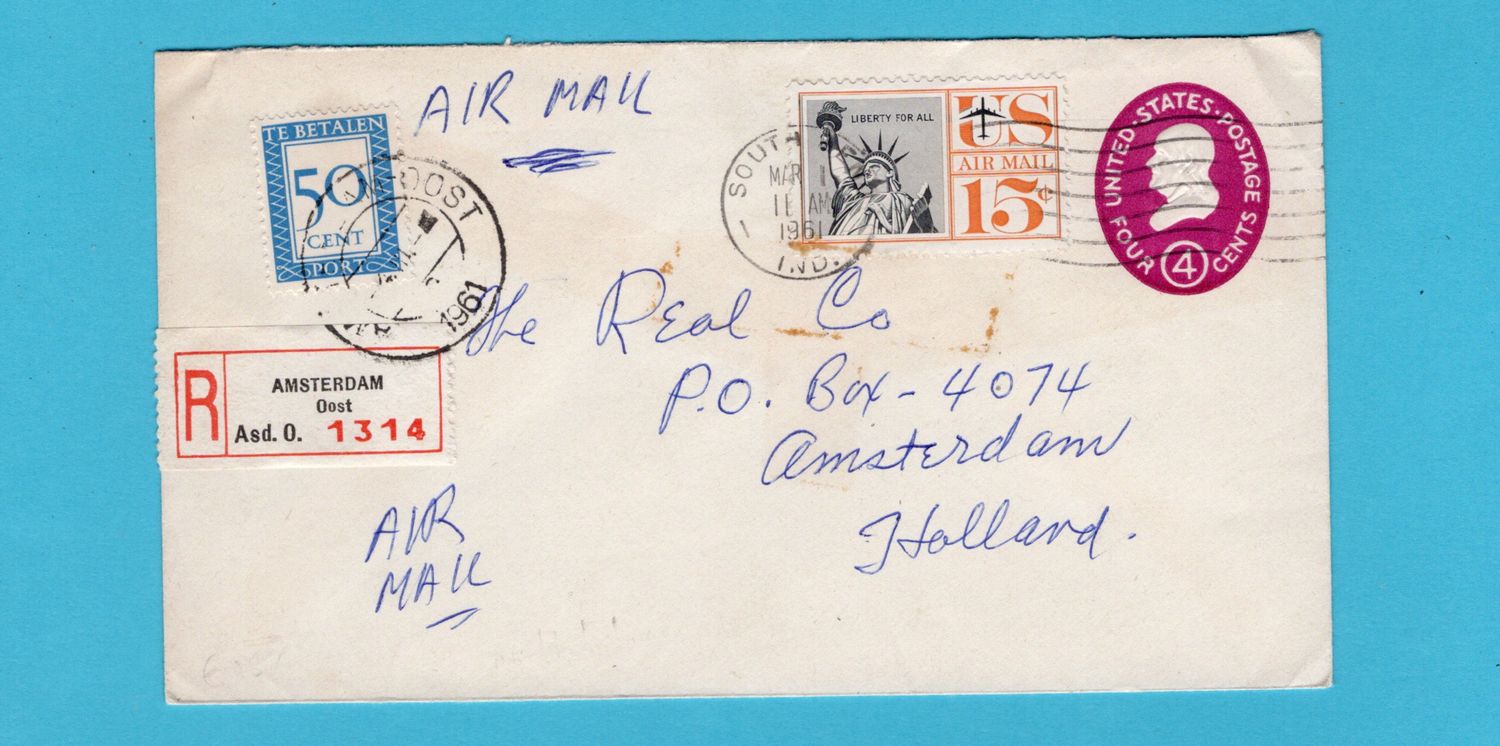 AIR MAIL
TE BETALEN
50
CENT
PORT
OOST
1961
SOUTH
MAR 1
11 AM
1961
IND.
LIBERTY FOR ALL
US
AIR MAIL
15¢
UNITED STATES·POSTAGE
FOUR 4 CENTS
The Real Co
P.O. Box - 4074
Amsterdam
Holland.
R
AMSTERDAM
Oost
Asd. O. 1314
AIR
MAIL